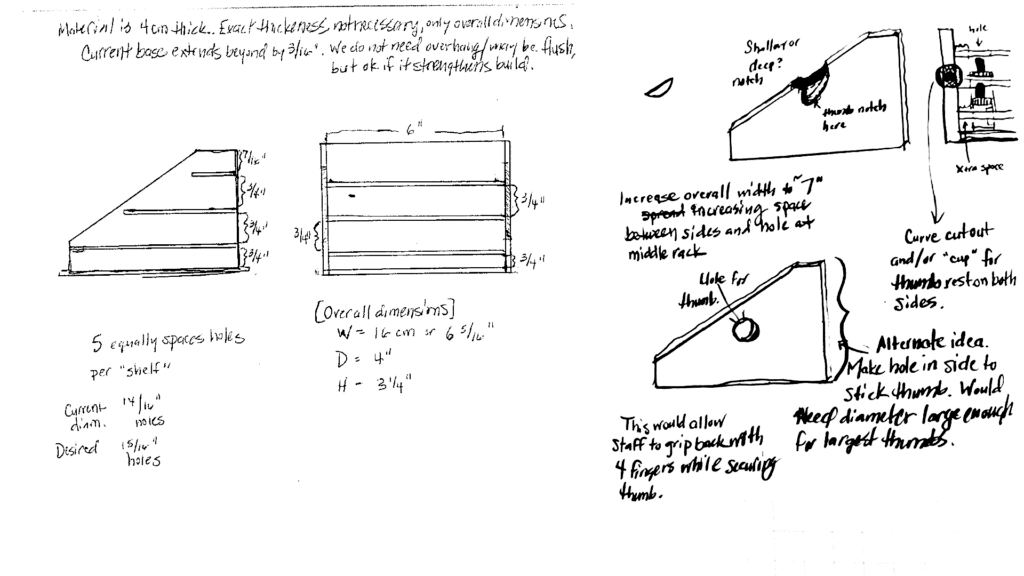 Material is 4cm thick. Exact thickeness, not necessary, only overall dimensions.
Current base extends beyond by 3/16". We do not need overhang/may be flush,
but ok if it strengthens build.
7/16"
3/4"
3/4"
3/4"
6"
3/4"
3/4"
3/4"
5 equally spaces holes
per "shelf"
Current diam. 14/16" holes
Desired 15/16" holes
[Overall dimensions]
W = 16 cm or 6 5/16"
D = 4"
H - 3 1/4"
Shallow or
deep?
notch
thumb notch
here
hole
Xtra space
Increase overall width to ~7"
increasing space
between sides and hole at
middle rack
Curve cutout
and/or "cup" for
thumb rest on both
sides.
Hole for
thumb.
Alternate idea.
Make hole in side to
stick thumb. Would
Need diameter large enough
for largest thumbs.
This would allow
staff to grip back with
4 fingers while securing
thumb.